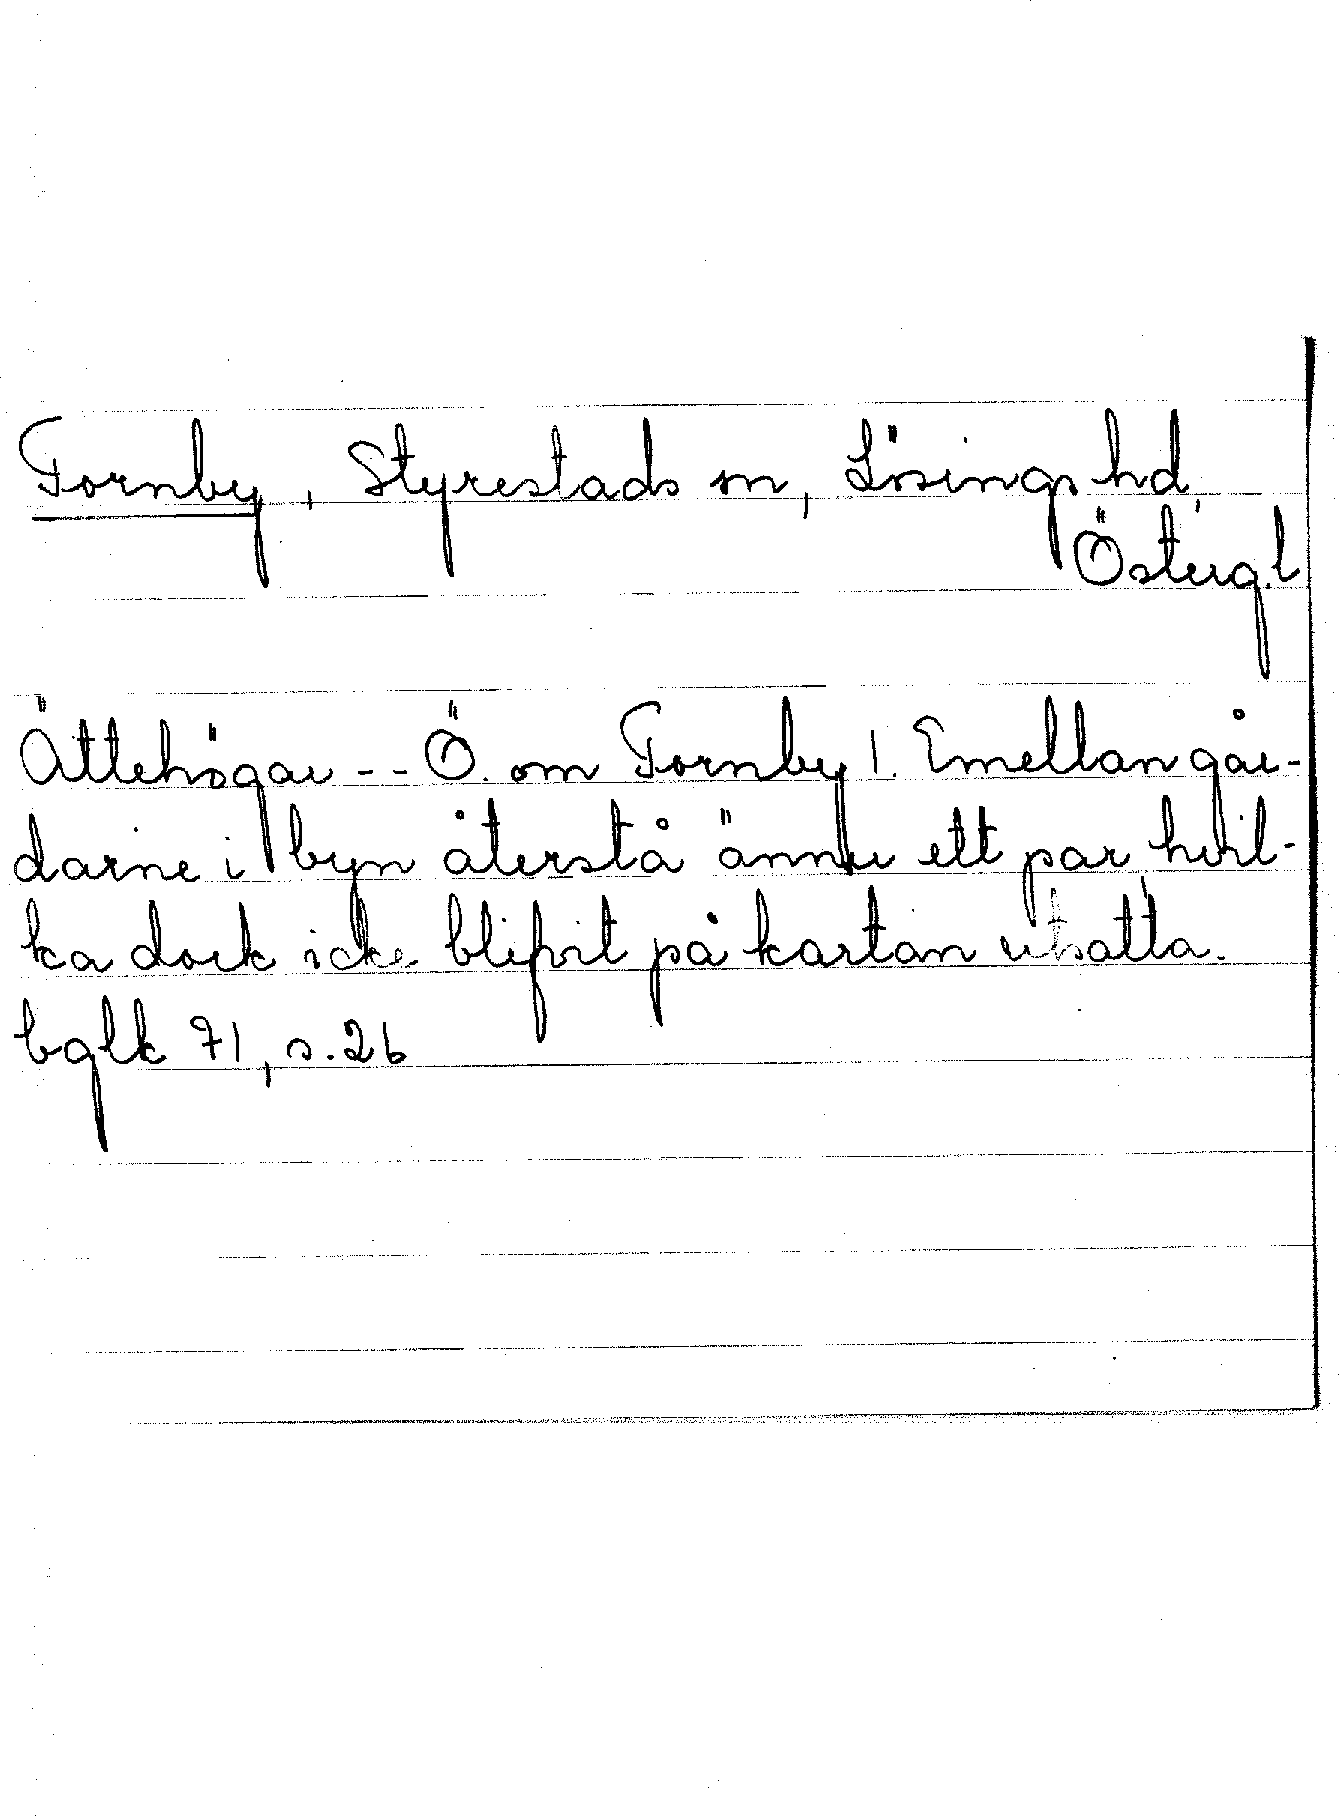 Fornby, Styrestads sn, Lösings hd,
Östergl
Ättehögar -- Ö. om Fornby 1. Emellan går-
darne i byn återstå ännu ett par, hvil-
ka dock icke blifvit på kartan utsatta.
bglk 71, s. 26